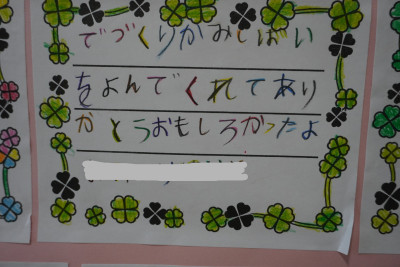 でづくりかみしばい
をよんでくれてあり
かとうおもしろかったよ